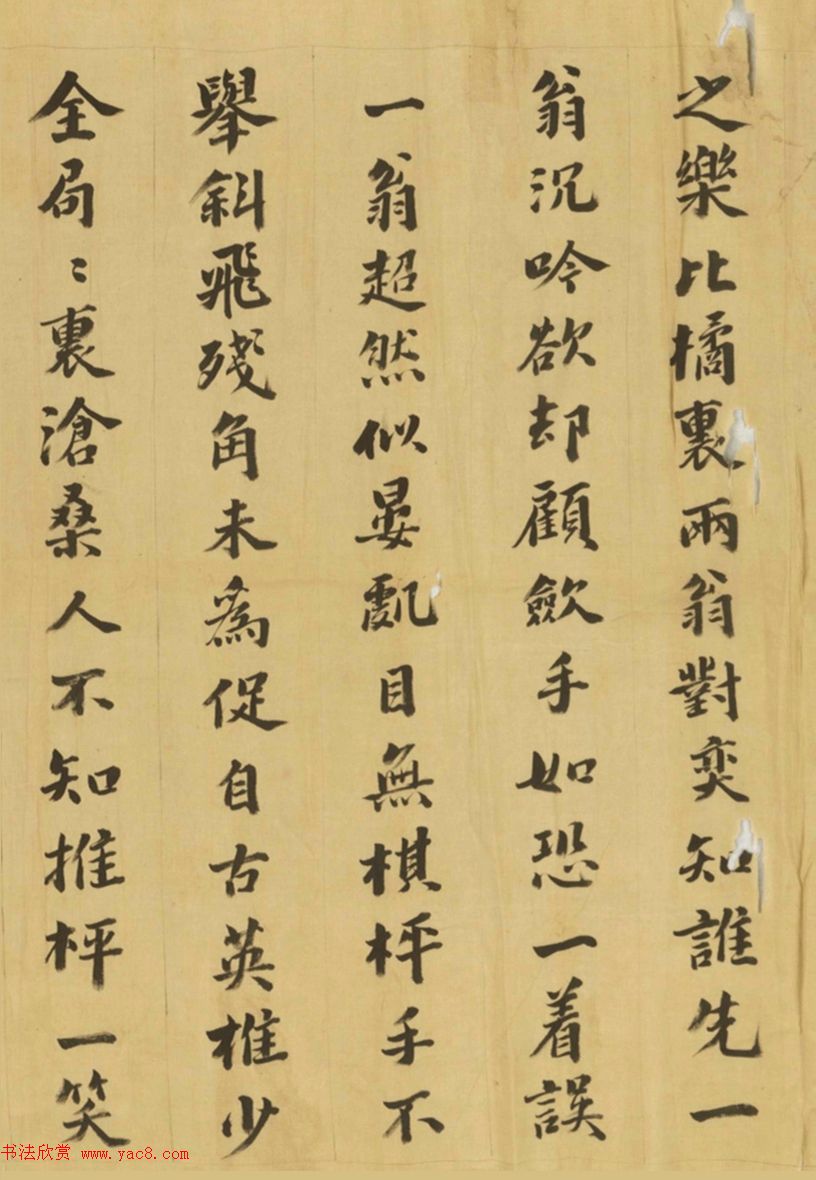 之樂比橘裏兩翁對奕知誰先一
翁沉吟欲却顧歛手如恐一着誤
一翁超然似晏亂目無棋枰手不
舉斜飛殘角未為促自古英椎少
全局〻裏滄桑人不知推枰一笑
书法欣赏 www.yac8.com